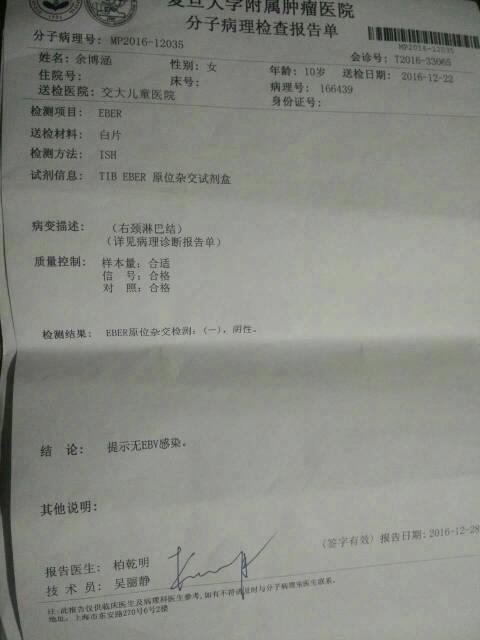 复旦大学附属肿瘤医院
分子病理检查报告单
MP2016-12035
分子病理号: MP2016-12035 会诊号: T2016-33065
姓名: 余博涵 性别: 女 年龄: 10岁 送检日期: 2016-12-22
住院号: 床号: 病理号: 166439
送检医院: 交大儿童医院 身份证号:
检测项目: EBER
送检材料: 白片
检测方法: ISH
试剂信息: TIB EBER 原位杂交试剂盒
病变描述: (右颈淋巴结)
(详见病理诊断报告单)
质量控制: 样本量: 合适
信 号: 合格
对 照: 合格
检测结果: EBER原位杂交检测: (—), 阴性。
结 论: 提示无EBV感染。
其他说明:
(签字有效) 报告日期: 2016-12-28
报告医生: 柏乾明
技 术 员: 吴丽静
注:此报告仅供临床医生及病理科医生参考,如有不符请及时与分子病理室医生联系。
地址: 上海市东安路270号6号2楼